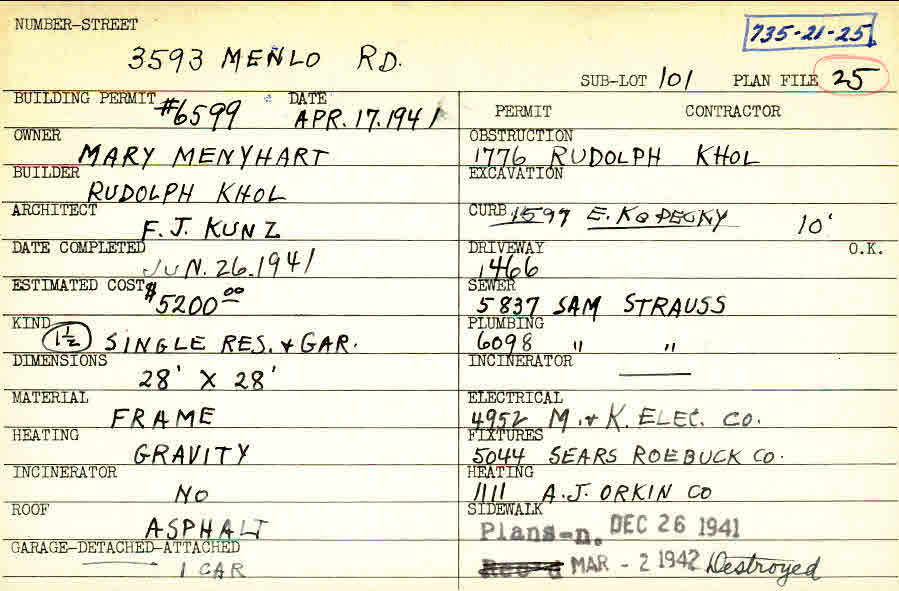 NUMBER-STREET
735-21-25
3593 MENLO RD.
SUB-LOT 101 PLAN FILE 25
BUILDING PERMIT #6599 DATE APR. 17. 1941
OWNER
MARY MENYHART
BUILDER
RUDOLPH KHOL
ARCHITECT
F. J. KUNZ
DATE COMPLETED
JUN. 26. 1941
ESTIMATED COST $5200.00
KIND
1½ SINGLE RES. & GAR.
DIMENSIONS
28' X 28'
MATERIAL
FRAME
HEATING
GRAVITY
INCINERATOR
NO
ROOF
ASPHALT
GARAGE-DETACHED-ATTACHED
1 CAR
PERMIT CONTRACTOR
OBSTRUCTION
1776 RUDOLPH KHOL
EXCAVATION
CURB 1597 E. KOPECKY 10'
DRIVEWAY O.K.
1466
SEWER
5837 SAM STRAUSS
PLUMBING
6098 " "
INCINERATOR
ELECTRICAL
4952 M. & K. ELEC. CO.
FIXTURES
5044 SEARS ROEBUCK CO.
HEATING
1111 A.J. ORKIN CO
SIDEWALK
Plans-n. DEC 26 1941
Rec'd MAR - 2 1942 Destroyed